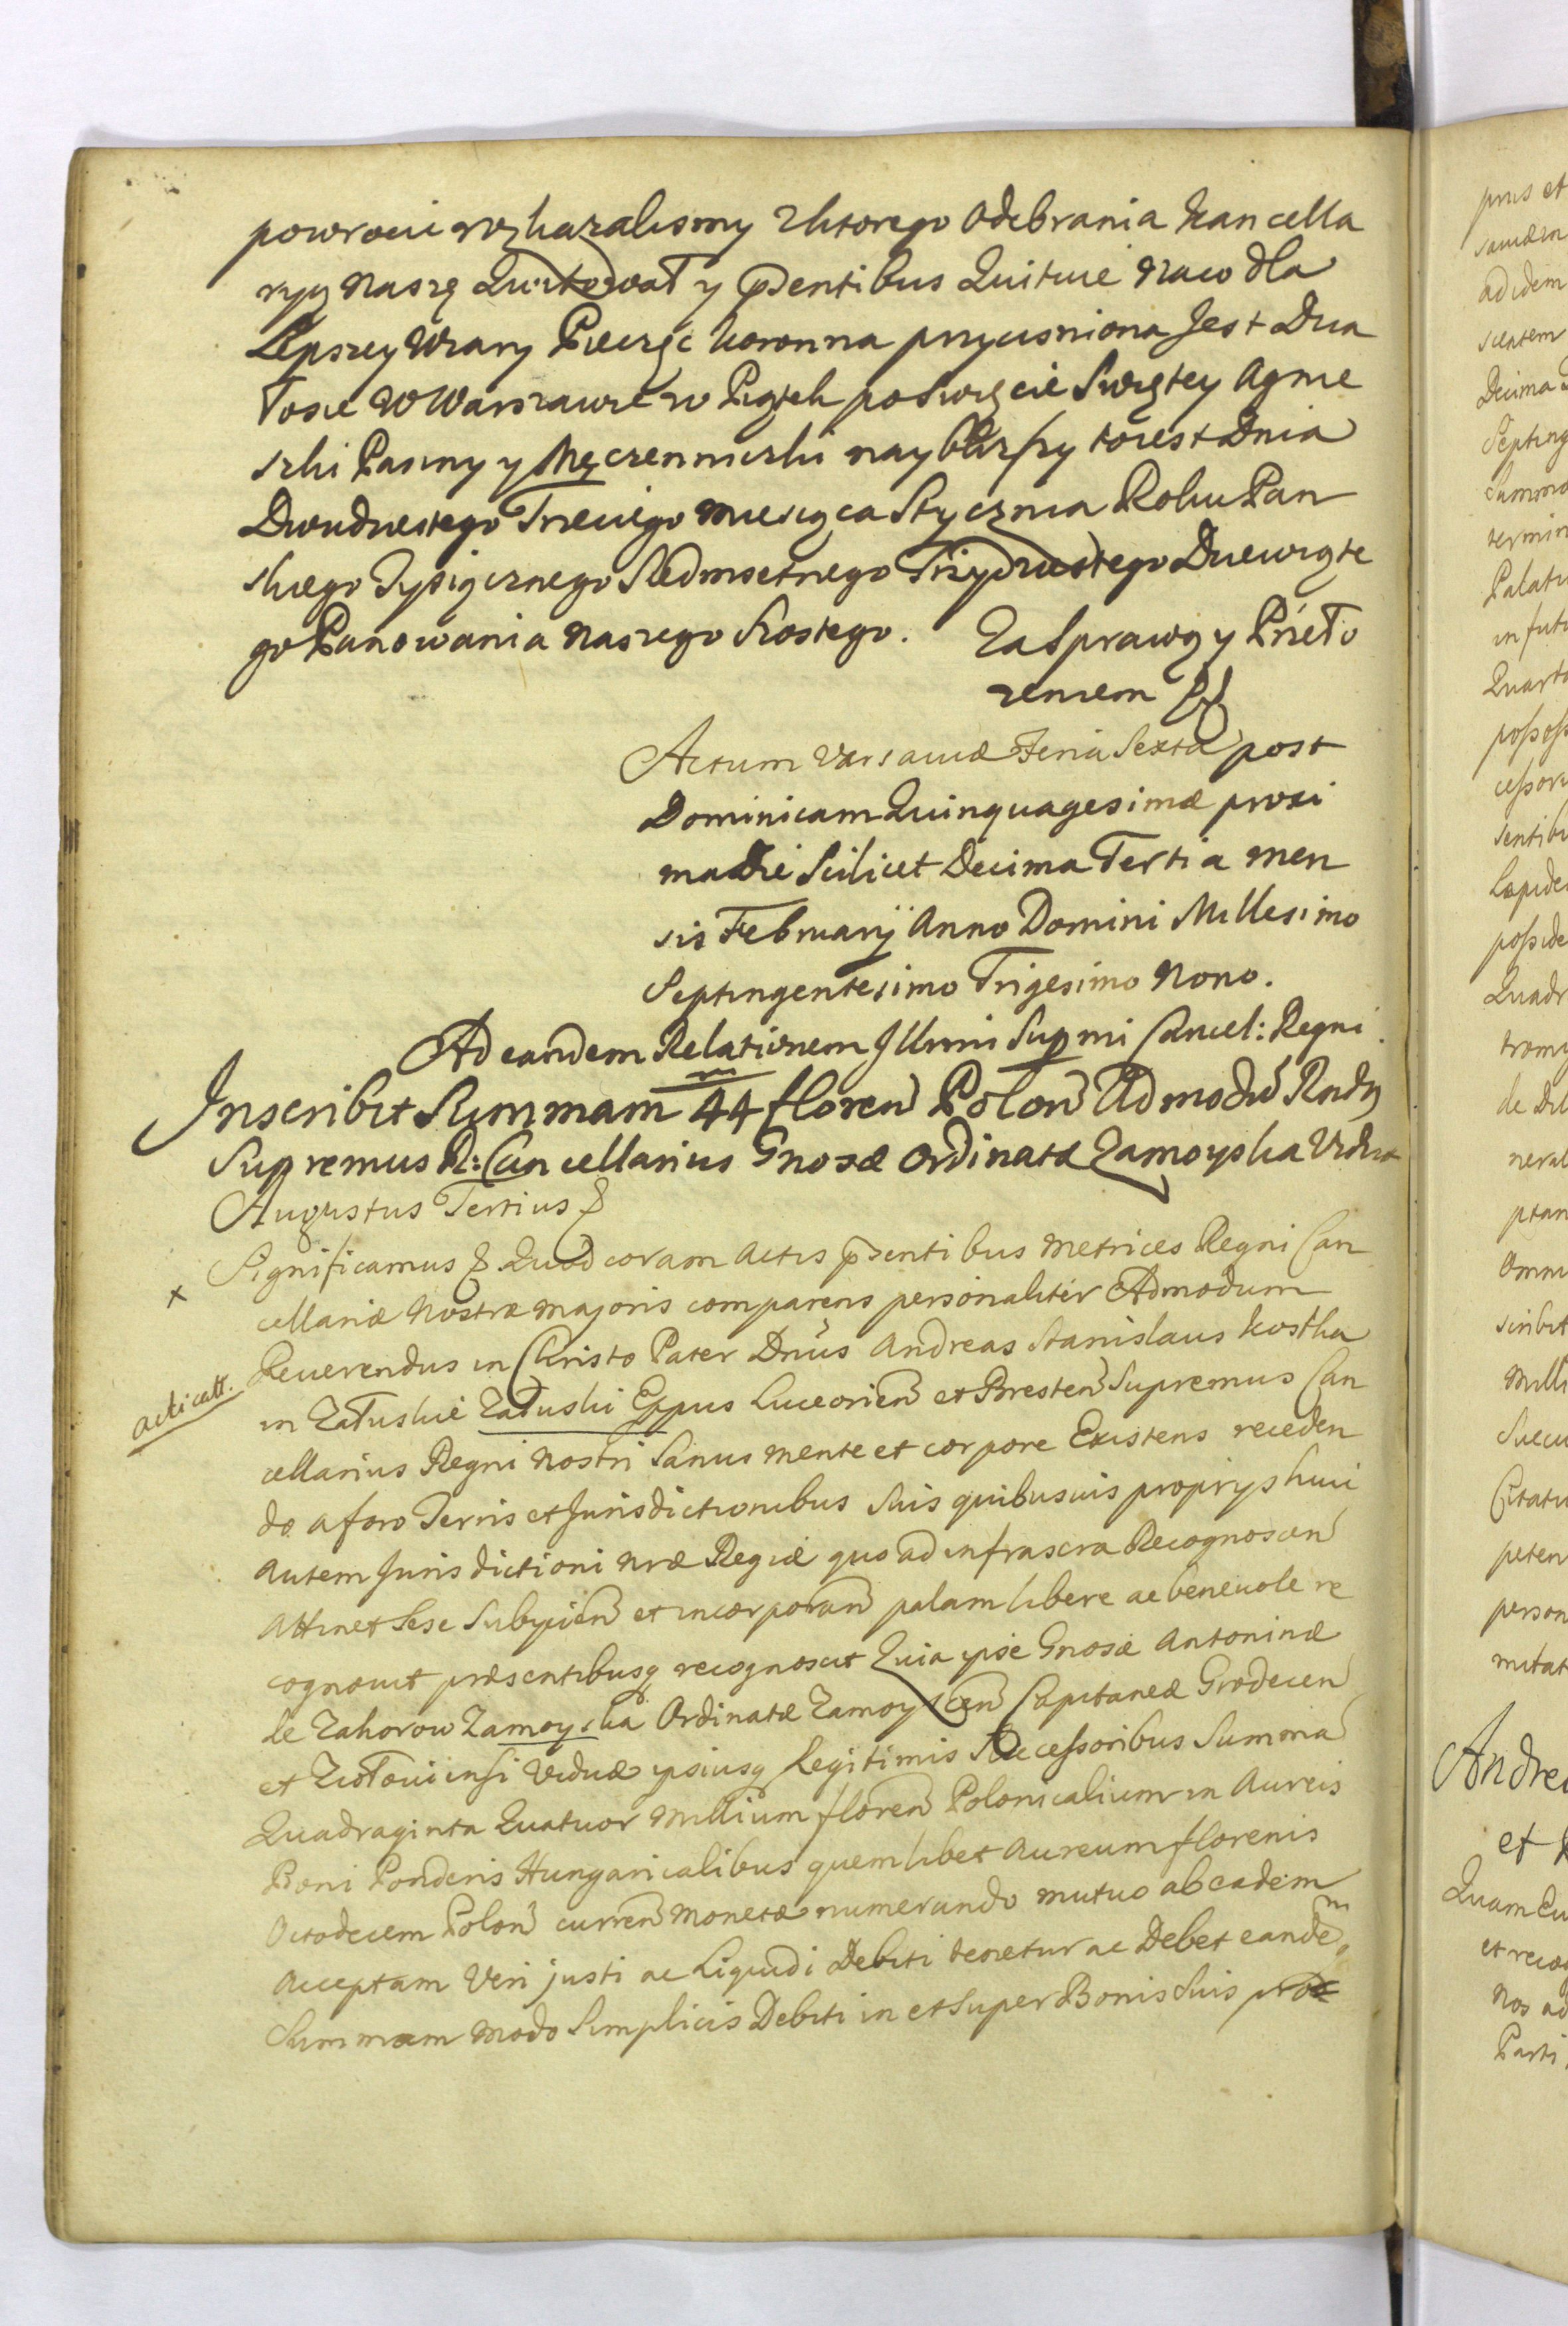 powrocic rozkazalismy z ktorego odebrania Kancella
ryą Naszę Quitował y psentibus Quituie Na co dla
Lepszey Wiary Pieczęc koronna przycisniona Jest Dzia
łosie W Warszawie w Piątek po Swięcie Swiętey Agnie
szki Panny y Męczenniczki naybliszszy to iest Dnia
Dwudziestego Trzeciego Miesiąca Stycznia Roku Pan
skiego Tysiącznego Siedmsetnego Trzydziestego Dziewiąte
go Panowania Naszego Szostego. Za Sprawą y Przeło
zeniem
Actum Varsaviæ Feria Sexta post
Dominicam Quinquagesimæ proxi
ma die Scilicet Decima Tertia men
sis Februarij Anno Domini Millesimo
Septingentesimo Trigesimo Nono.
Ad eandem Relationem Illmi Supmi Cancel: Regni.
Inscribit Summam 44 m floren Polon Admodu Rndg
Supremus R: Cancellarius Gnosæ Ordinatæ Zamoyska Vidua
Augustus Tertius &
x Significamus & Quod coram Actis psentibus Metrices Regni Can
cellariæ Nostræ Majoris comparens personaliter Admodum
Reuerendus in Christo Pater Dnus Andreas Stanislaus Kostka
acticatt.
in Załuskie Załuski Eppus Luceorien et Bresten Supremus Can
cellarius Regni Nostri Sanus mente et corpore Existens receden
do a foro Terris et Jurisdictionibus Suis quibusuis proprijs huic
autem Jurisdictioni nræ Regiæ quo ad infrascra Recognoscen
Attinet Sese Subijcien et incorporan palam libere ac beneuole re
cognouit præsentibusq recognoscit Quia ipse Gnosæ Antoninæ
de Zahorow Zamoyska Ordinatæ Zamoyscen Capitaneæ Grodecen
et Ziołouiensi Viduæ ipsiusq Legitimis Successoribus Summa
Quadraginta Quatuor Millium floren Polonicalium in Aureis
Boni Ponderis Hungaricalibus quemlibet Aureum florenis
Octodecem Polon curren Monetæ numerando mutuo ab eadem
acceptam Veri justi ac Liquidi Debiti tenetur ac Debet eandem
Summam modo Simplicis Debiti in et Super Bonis Suis